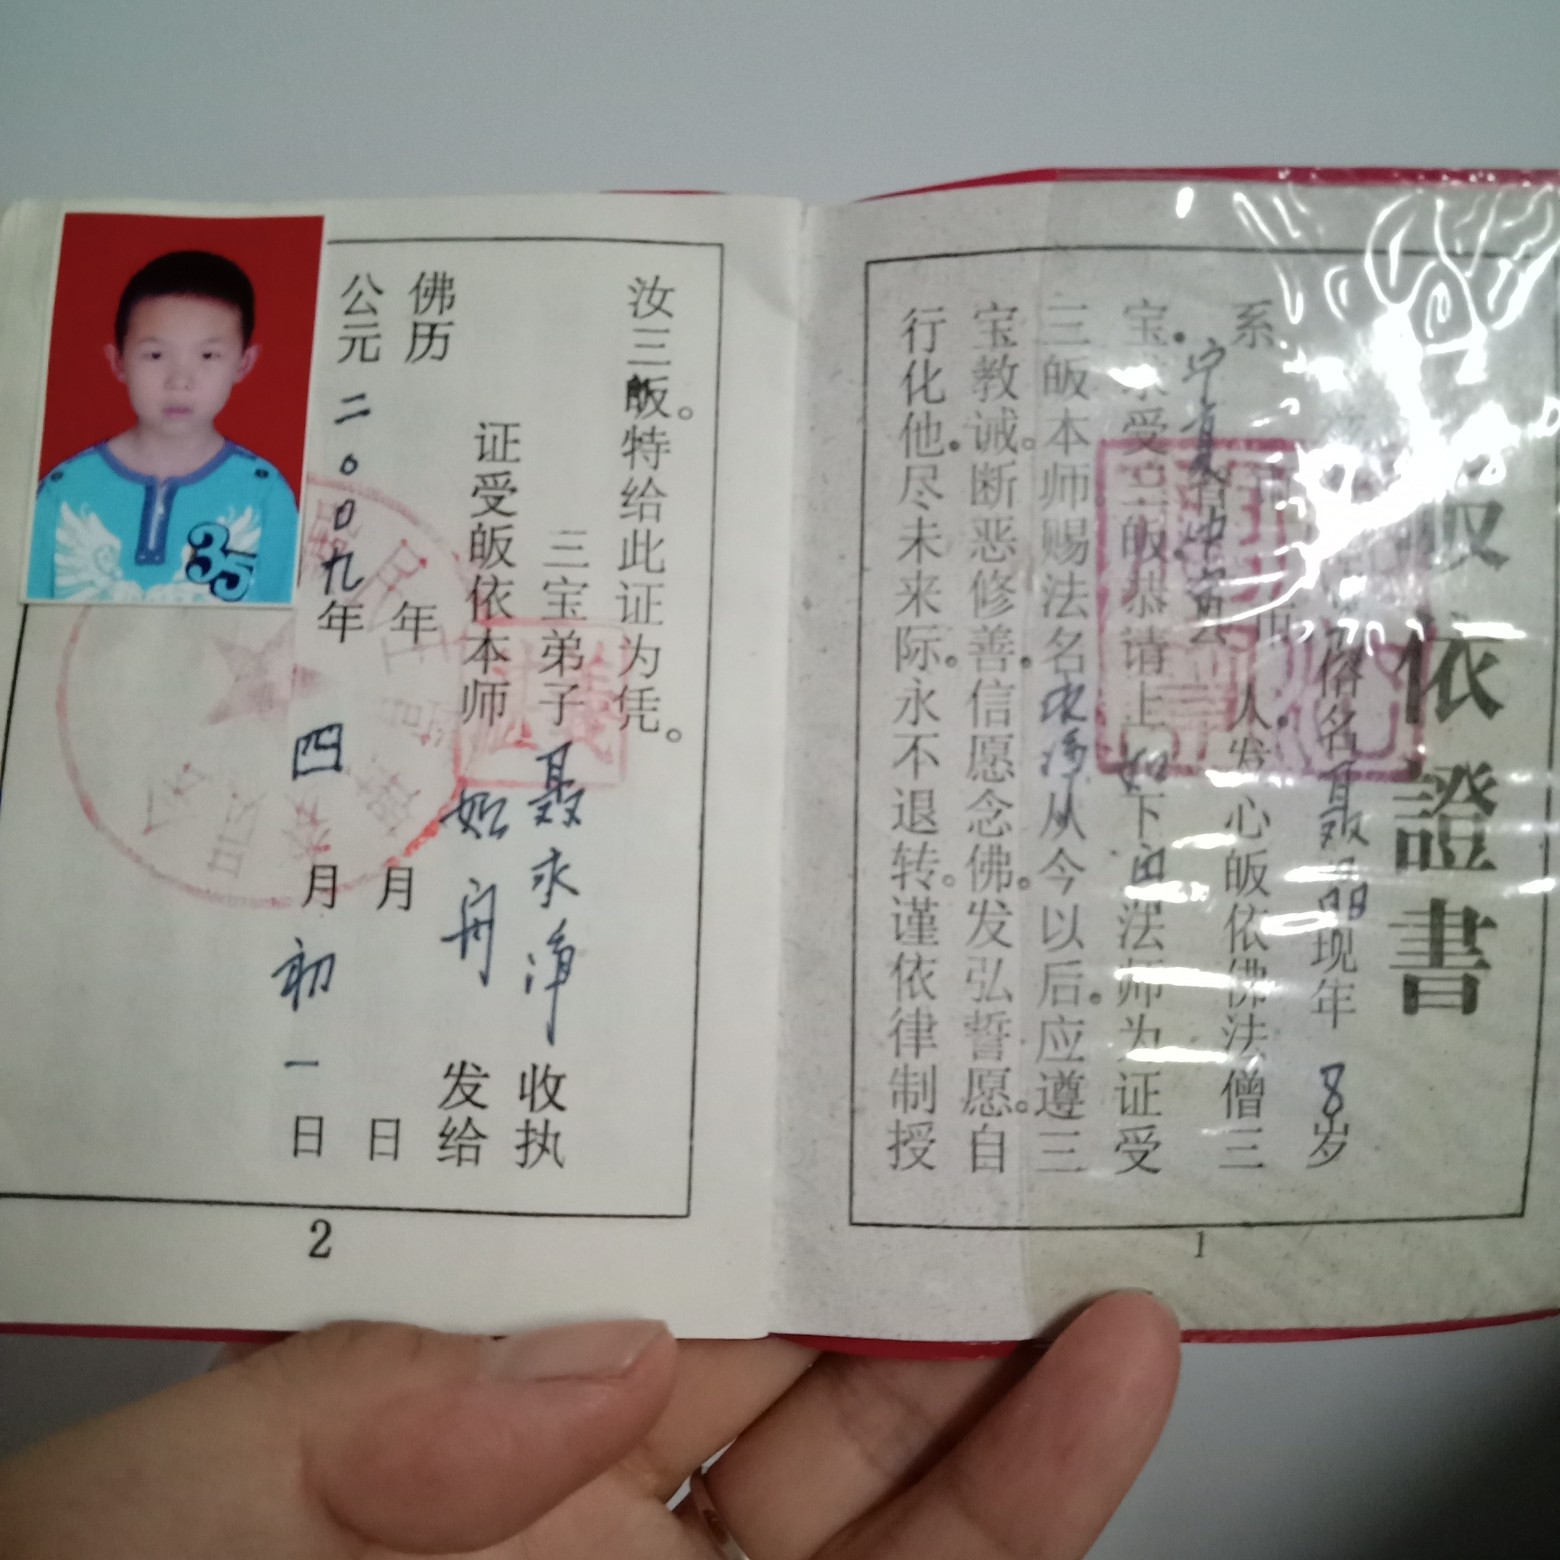 皈依證書
俗名聂明现年8岁
系
宁夏省中宁县
人发心皈依佛法僧三
宝。求受三皈。恭请上如下舟法师为证受
三皈本师赐法名永净从今以后。应遵三
宝教诫。断恶修善。信愿念佛。发弘誓愿。自
行化他。尽未来际。永不退转。谨依律制授
1
汝三皈。特给此证为凭。
三宝弟子聂永净收执
证受皈依本师如舟发给
佛历 年 月 日
公元二〇〇九年四月初一日
35
2